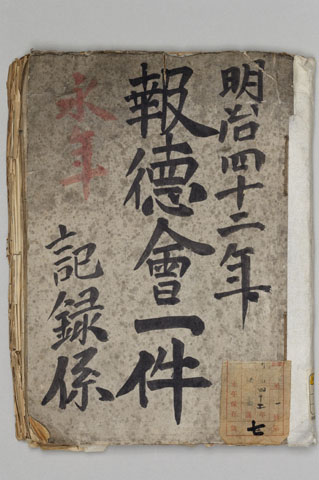 明治四十二年
報德會一件
永年
記録係
七